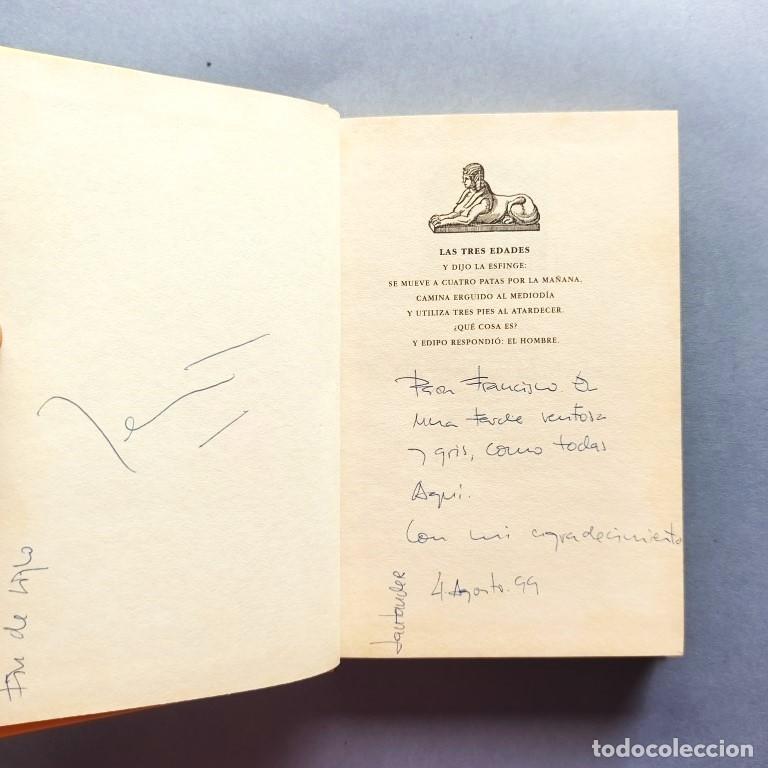 Fin de siglo
LAS TRES EDADES
Y DIJO LA ESFINGE:
SE MUEVE A CUATRO PATAS POR LA MAÑANA,
CAMINA ERGUIDO AL MEDIODÍA
Y UTILIZA TRES PIES AL ATARDECER.
¿QUÉ COSA ES?
Y EDIPO RESPONDIÓ: EL HOMBRE.
Para Francisco. En
una tarde ventosa
y gris, como todas
Aquí.
Con mi agradecimiento
4 Agosto. 99
Santander
todocoleccion